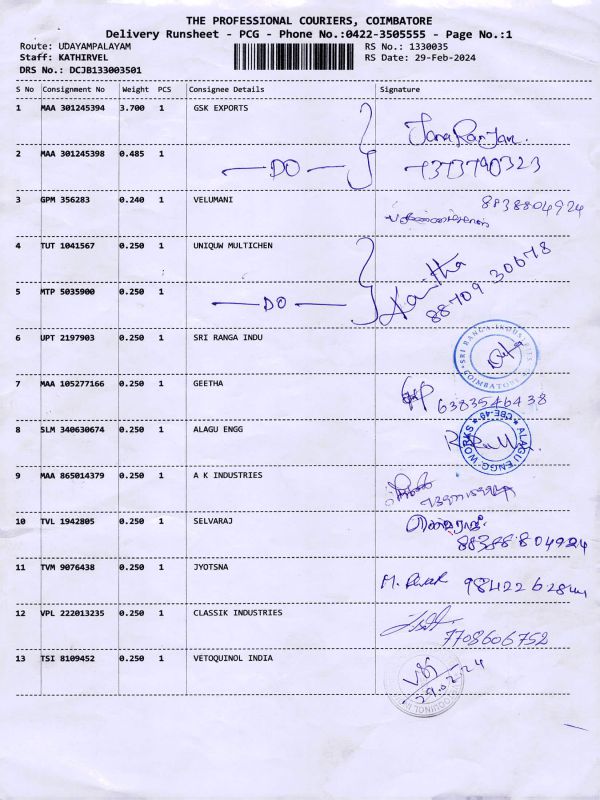 THE PROFESSIONAL COURIERS, COIMBATORE
Delivery Runsheet - PCG - Phone No.:0422-3505555 - Page No.:1
Route: UDAYAMPALAYAM RS No.: 1330035
Staff: KATHIRVEL RS Date: 29-Feb-2024
DRS No.: DCJB133003501
S No Consignment No Weight PCS Consignee Details Signature
1 MAA 301245394 3.700 1 GSK EXPORTS
2 MAA 301245398 0.485 1 DO 7373790323
3 GPM 356283 0.240 1 VELUMANI 8838804924
4 TUT 1041567 0.250 1 UNIQUW MULTICHEN
5 MTP 5035900 0.250 1 DO 88709 30678
6 UPT 2197903 0.250 1 SRI RANGA INDU SRI RANGA INDUSTRIES COIMBATORE
7 MAA 105277166 0.250 1 GEETHA 6383546438
8 SLM 340630674 0.250 1 ALAGU ENGG ALAGU ENGG WORKS CBE-49
9 MAA 865014379 0.250 1 A K INDUSTRIES
10 TVL 1942805 0.250 1 SELVARAJ
11 TVM 9076438 0.250 1 JYOTSNA
12 VPL 222013235 0.250 1 CLASSIK INDUSTRIES 7708606752
13 TSI 8109452 0.250 1 VETOQUINOL INDIA 29.02.24